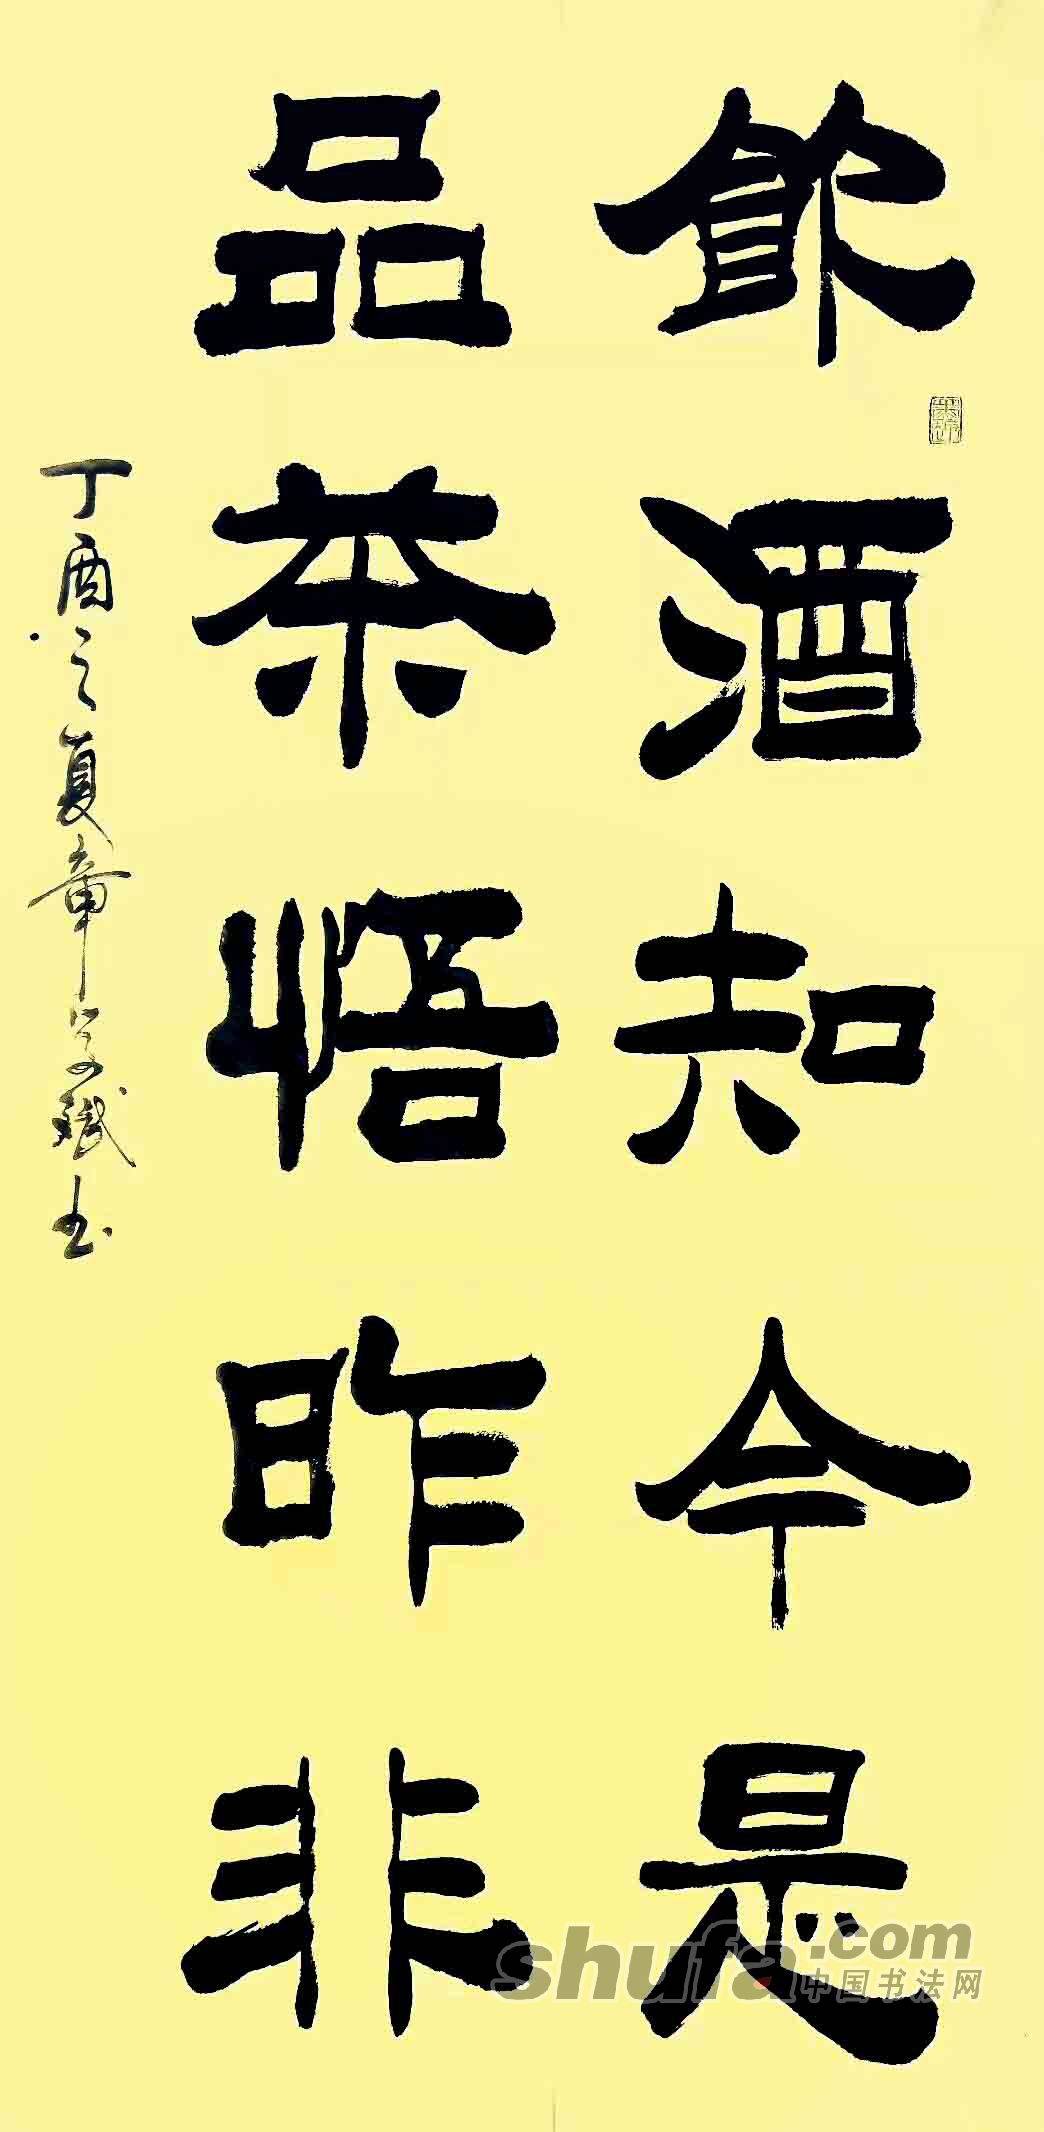 飲酒知今是
品茶悟昨非
丁酉之夏章学斌书
shufa.com
中国书法网